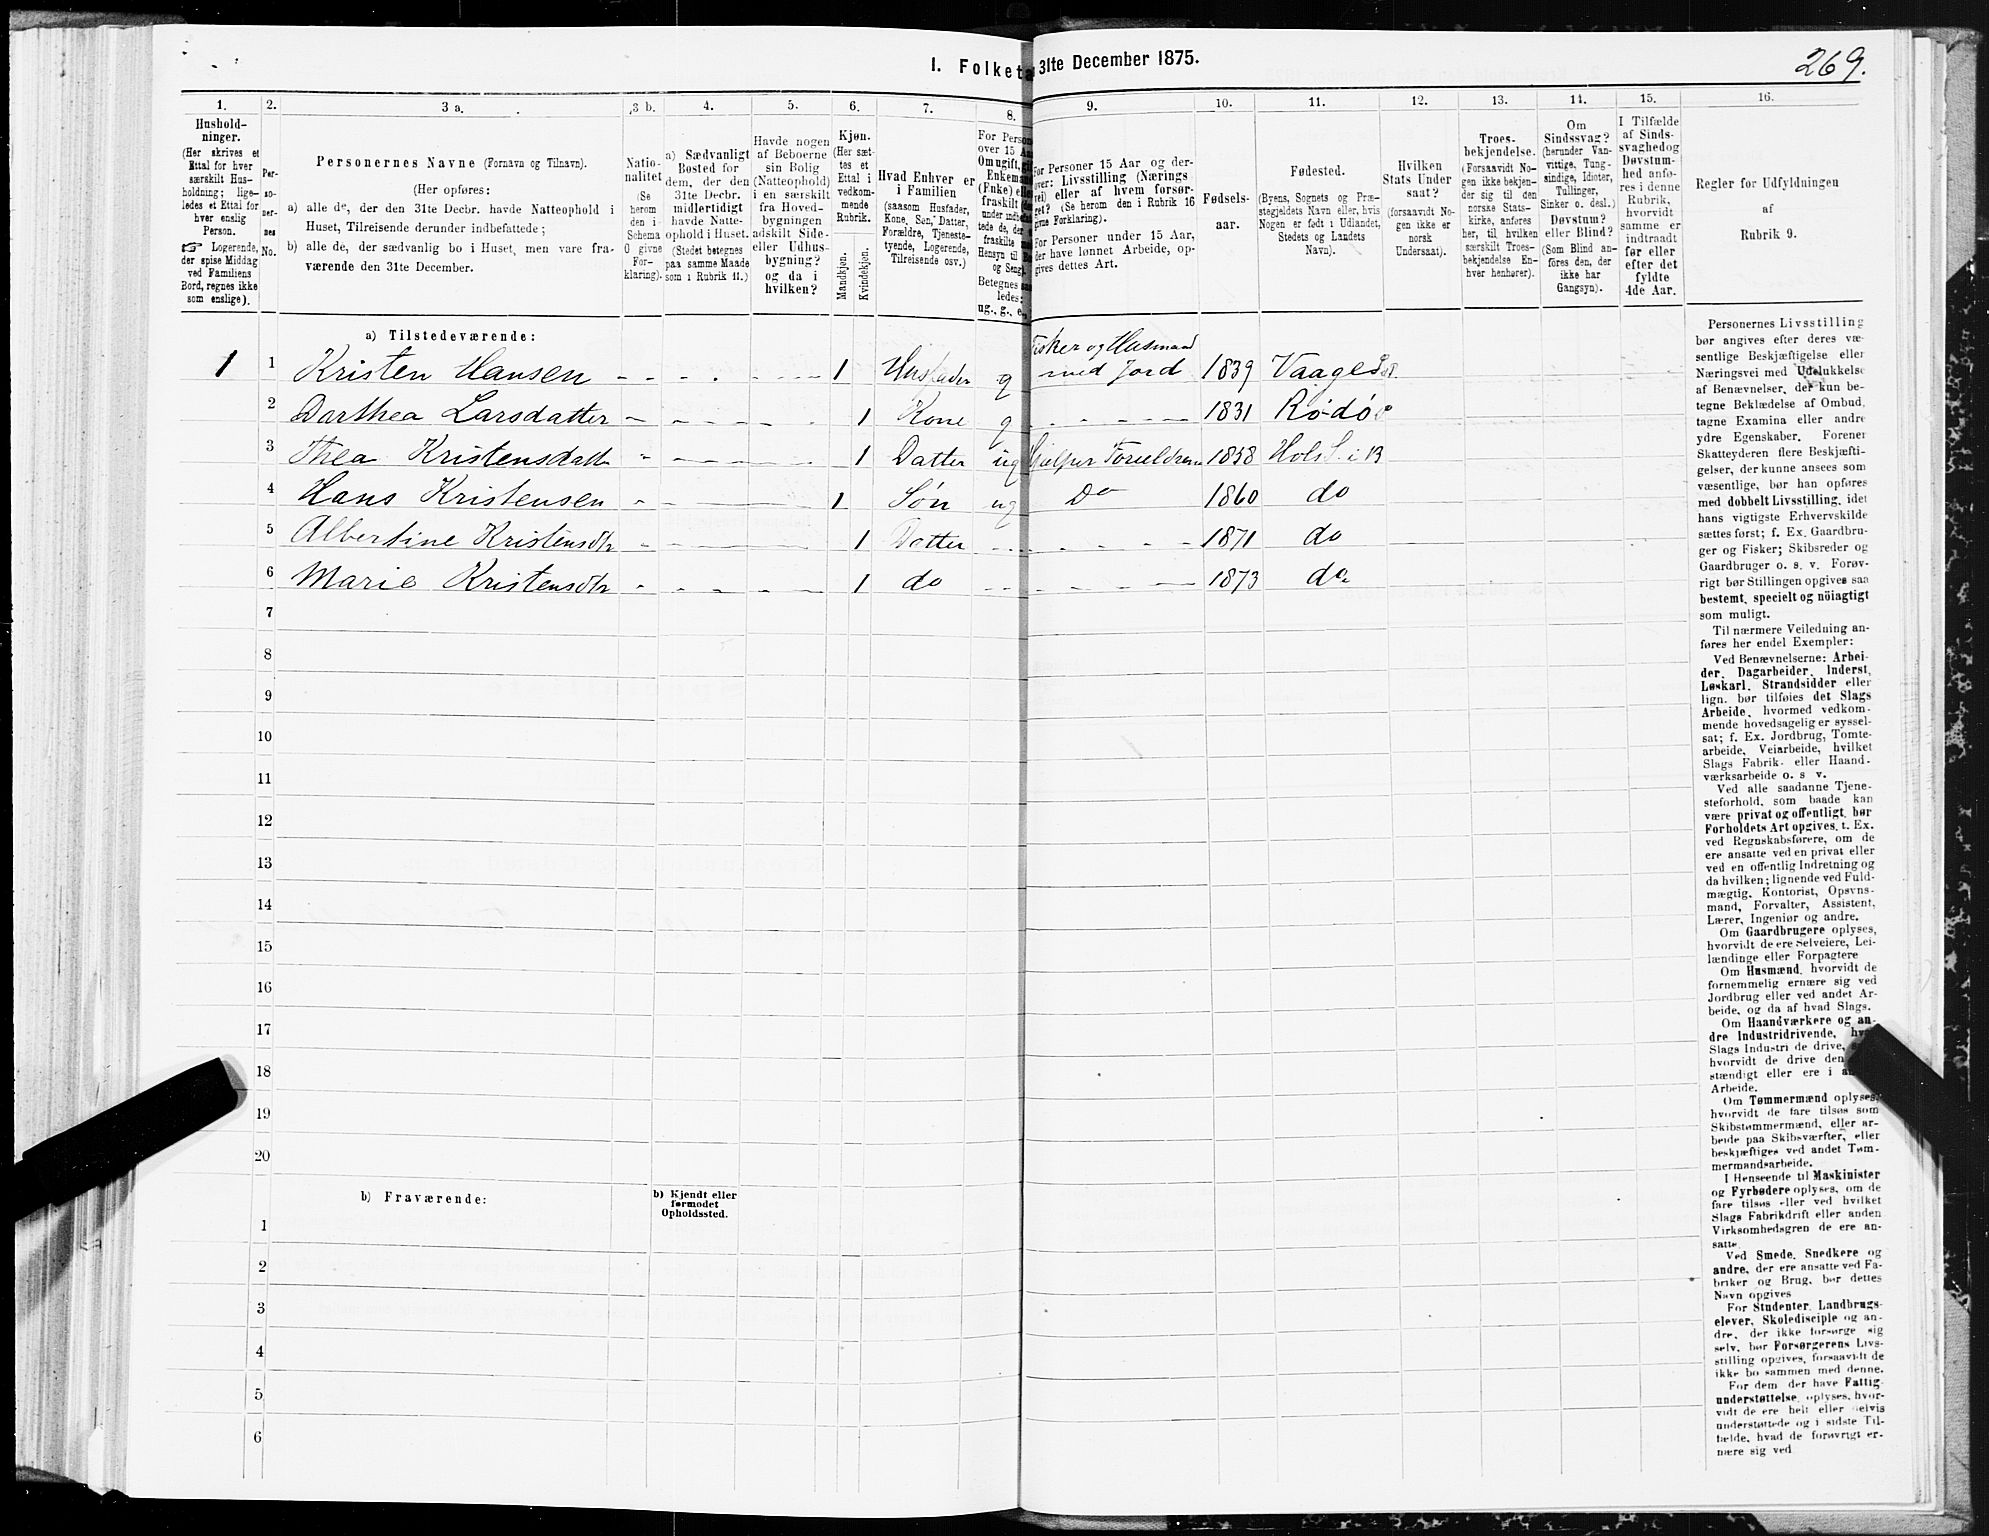 269.
I. Folketa 31te December 1875.
1. 2. 3 a. 3 b. 4. 5. 6. 7. 8. 9. 10. 11. 12. 13. 14. 15. 16.
Hushold-
ninger.
(Her skrives et
Ettal for hver
særskilt Hus-
holdning; lige-
ledes et Ettal for
hver enslig
Person.
☞ Logerende,
der spise Middag
ved Familiens
Bord, regnes ikke
som enslige).
Per-
so-
ner-
nes
No.
Personernes Navne (Fornavn og Tilnavn).
(Her opføres:
a) alle de, der den 31te Decbr. havde Natteophold i
Huset, Tilreisende derunder indbefattede;
b) alle de, der sædvanlig bo i Huset, men vare fra-
værende den 31te December.
Natio-
nalitet
(Se
herom
den i
Schema
O givne
For-
klaring).
a) Sædvanligt
Bosted for
dem, der den
31te Decbr.
midlertidigt
havde Natte-
ophold i Huset.
(Stedet betegnes
paa samme Maade
som i Rubrik 11.)
Havde nogen
af Beboerne
sin Bolig
(Natteophold)
i en særskilt
fra Hoved-
bygningen
adskilt Side-
eller Udhus-
bygning?
og da i
hvilken?
Kjøn.
(Her sæt-
tes et
Ettal i
vedkom-
mende
Rubrik.
Mandkjøn.
Kvindekjøn.
Hvad Enhver er
i Familien
(saasom Husfader,
Kone, Søn, Datter,
Forældre, Tjeneste-
tyende, Logerende,
Tilreisende osv.)
For Person
over 15 Aa
Om ugift, gif
Enkema
(Enke) elle
fraskilt
under indbef
tede de, der
fraskilte
Hensyn til Bo
og Seng).
Betegnes saa
ledes:
ug., g., e.,
For Personer 15 Aar og der-
over: Livsstilling (Nærings
vei) eller af hvem forsør-
get? (Se herom den i Rubrik 16
givne Forklaring).
For Personer under 15 Aar,
der have lønnet Arbeide, op-
gives dettes Art.
Fødsels-
aar.
Fødested.
(Byens, Sognets og Præ-
stegjeldets Navn eller, hvis
Nogen er født i Udlandet,
Stedets og Landets
Navn).
Hvilken
Stats Under
saat?
(forsaavidt No-
gen ikke er
norsk
Undersaat).
Troes-
bekjendelse.
(Forsaavidt No-
gen ikke bekjen-
der sig til den
norske Stats-
kirke, anføres
her, til hvilken
særskilt Troes-
bekjendelse En-
hver henhører).
Om
Sindssvag?
(herunder Van-
vittige, Tung-
sindige, Idioter,
Tullinger,
Sinker o. desl.)
Døvstum?
eller Blind?
(Som Blind an-
føres den, der
ikke har
Gangsyn).
I Tilfælde
af Sinds-
svaghed og
Døvstum-
hed anfø-
res i denne
Rubrik,
hvorvidt
samme er
indtraadt
før eller
efter det
fyldte
4de Aar.
Regler for Udfyldningen
af
Rubrik 9.
a) Tilstedeværende:
Fisker og Husmand
1 1 Kristen Hansen 1 Husfader g med Jord 1839 Vaage
2 Darthea Larsdatter 1 Kone g 1831 Rødø
3 Thea Kristensdatt 1 Datter ug hjelper Forældrene 1858 Hols S. i B
4 Hans Kristensen 1 Søn ug Do 1860 do
5 Albertine Kristensdtr 1 Datter 1871 do
6 Marie Kristensdtr 1 do 1873 do
7
8
9
10
11
12
13
14
15
16
17
18
19
20
b) Fraværende:
b) Kjendt eller
formodet
Opholdssted.
1
2
3
4
5
6
Personernes Livsstilling
bør angives efter deres væ-
sentlige Beskjæftigelse eller
Næringsvei med Udelukkelse
af Benævnelser, der kun be-
tegne Beklædelse af Ombud,
tagne Examina eller andre
ydre Egenskaber. Forener
Skatteyderen flere Beskjæfti-
gelser, der kunne ansees som
væsentlige, bør han opføres
med dobbelt Livsstilling, idet
hans vigtigste Erhvervskilde
sættes først; f. Ex. Gaardbru-
ger og Fisker; Skibsreder og
Gaardbruger o. s. v. Forøv-
rigt bør Stillingen opgives saa
bestemt, specielt og nöiagtigt
som muligt.
Til nærmere Veiledning an-
føres her endel Exempler:
Ved Benævnelserne: Arbei-
der, Dagarbeider, Inderst,
Løskarl, Strandsidder eller
lign. bør tilføies det Slags
Arbeide, hvormed vedkom-
mende hovedsagelig er syssel-
sat; f. Ex. Jordbrug, Tomte-
arbeide, Veiarbeide, hvilket
Slags Fabrik- eller Haand-
værksarbeide o. s v.
Ved alle saadanne Tjene-
steforhold, som baade kan
være privat og offentligt, bør
Forholdets Art opgives, t. Ex.
ved Regnskabsførere, om de
ere ansatte ved en privat eller
ved en offentlig Indretning og
da hvilken; lignende ved Fuld-
mægtig, Kontorist, Opsyns-
mand, Forvalter, Assistent,
Lærer, Ingeniør og andre.
Om Gaardbrugere oplyses,
hvorvidt de ere Selveiere, Lei-
lændinge eller Forpagtere
Om Husmænd, hvorvidt de
fornemmelig ernære sig ved
Jordbrug eller ved andet Ar-
beide, og da af hvad Slags.
Om Haandværkere og an-
dre Industridrivende, hva
Slags Industri de drive,
hvorvidt de drive den
stændigt eller ere i
Arbeide.
Om Tømmermænd oplyses,
hvorvidt de fare tilsøs som
Skibstømmermænd, eller ar-
beide paa Skibsværfter, eller
beskjæftiges ved andet Tøm-
mermandsarbeide.
I Henseende til Maskinister
og Fyrbødere oplyses, om de
fare tilsøs eller ved hvilket
Slags Fabrikdrift eller anden
Virksomhedsgren de ere an-
satte.
Ved Smede, Snedkere og
andre, der ere ansatte ved Fa-
briker og Brug, bør dettes
Navn opgives
For Studenter, Landbrugs-
elever, Skoledisciple og an-
dre, der ikke forsørge sig
selv, bør Forsørgerens Livs-
stilling opgives, forsaavidt de
ikke bo sammen med denne.
For dem der have Fattig-
understøttelse, oplyses, hvor-
vidt de ere helt eller delvis
understøttede og i sidste Til-
fælde, hvad de forøvrigt er-
nære sig ved